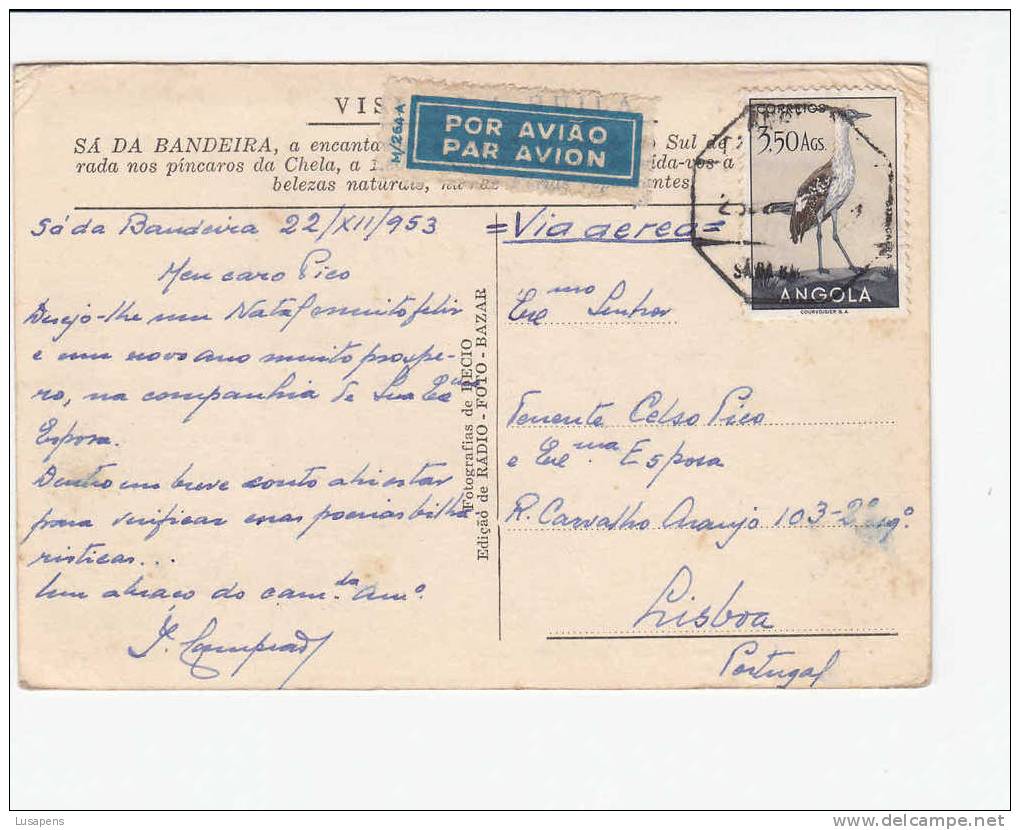 VIS
SÁ DA BANDEIRA, a encanta Sul de
rada nos píncaros da Chela, a vida-vos a
belezas naturais, ntes.
M/264-A
POR AVIÃO
PAR AVION
CORREIOS
3,50 Ags.
ANGOLA
COURVOISIER S.A.
Sá da Bandeira 22/XII/953
Meu caro Pico
Desejo-lhe um Natal muito feliz
e um novo ano muito prospe-
ro, na companhia de Sua Exma
Esposa.
Dentro em breve conto ahi estar
para verificar essas poesias bilha
risticas...
Um abraço do cam.da am.º
Fotografias de DECIO
Edição de RÁDIO - FOTO - BAZAR
=Via aerea=
Exmo Senhor
Tenente Celso Pico
e Exma Esposa
R. Carvalho Araujo 103-2º
Lisboa
Portugal
Lusapens
delcampe.net